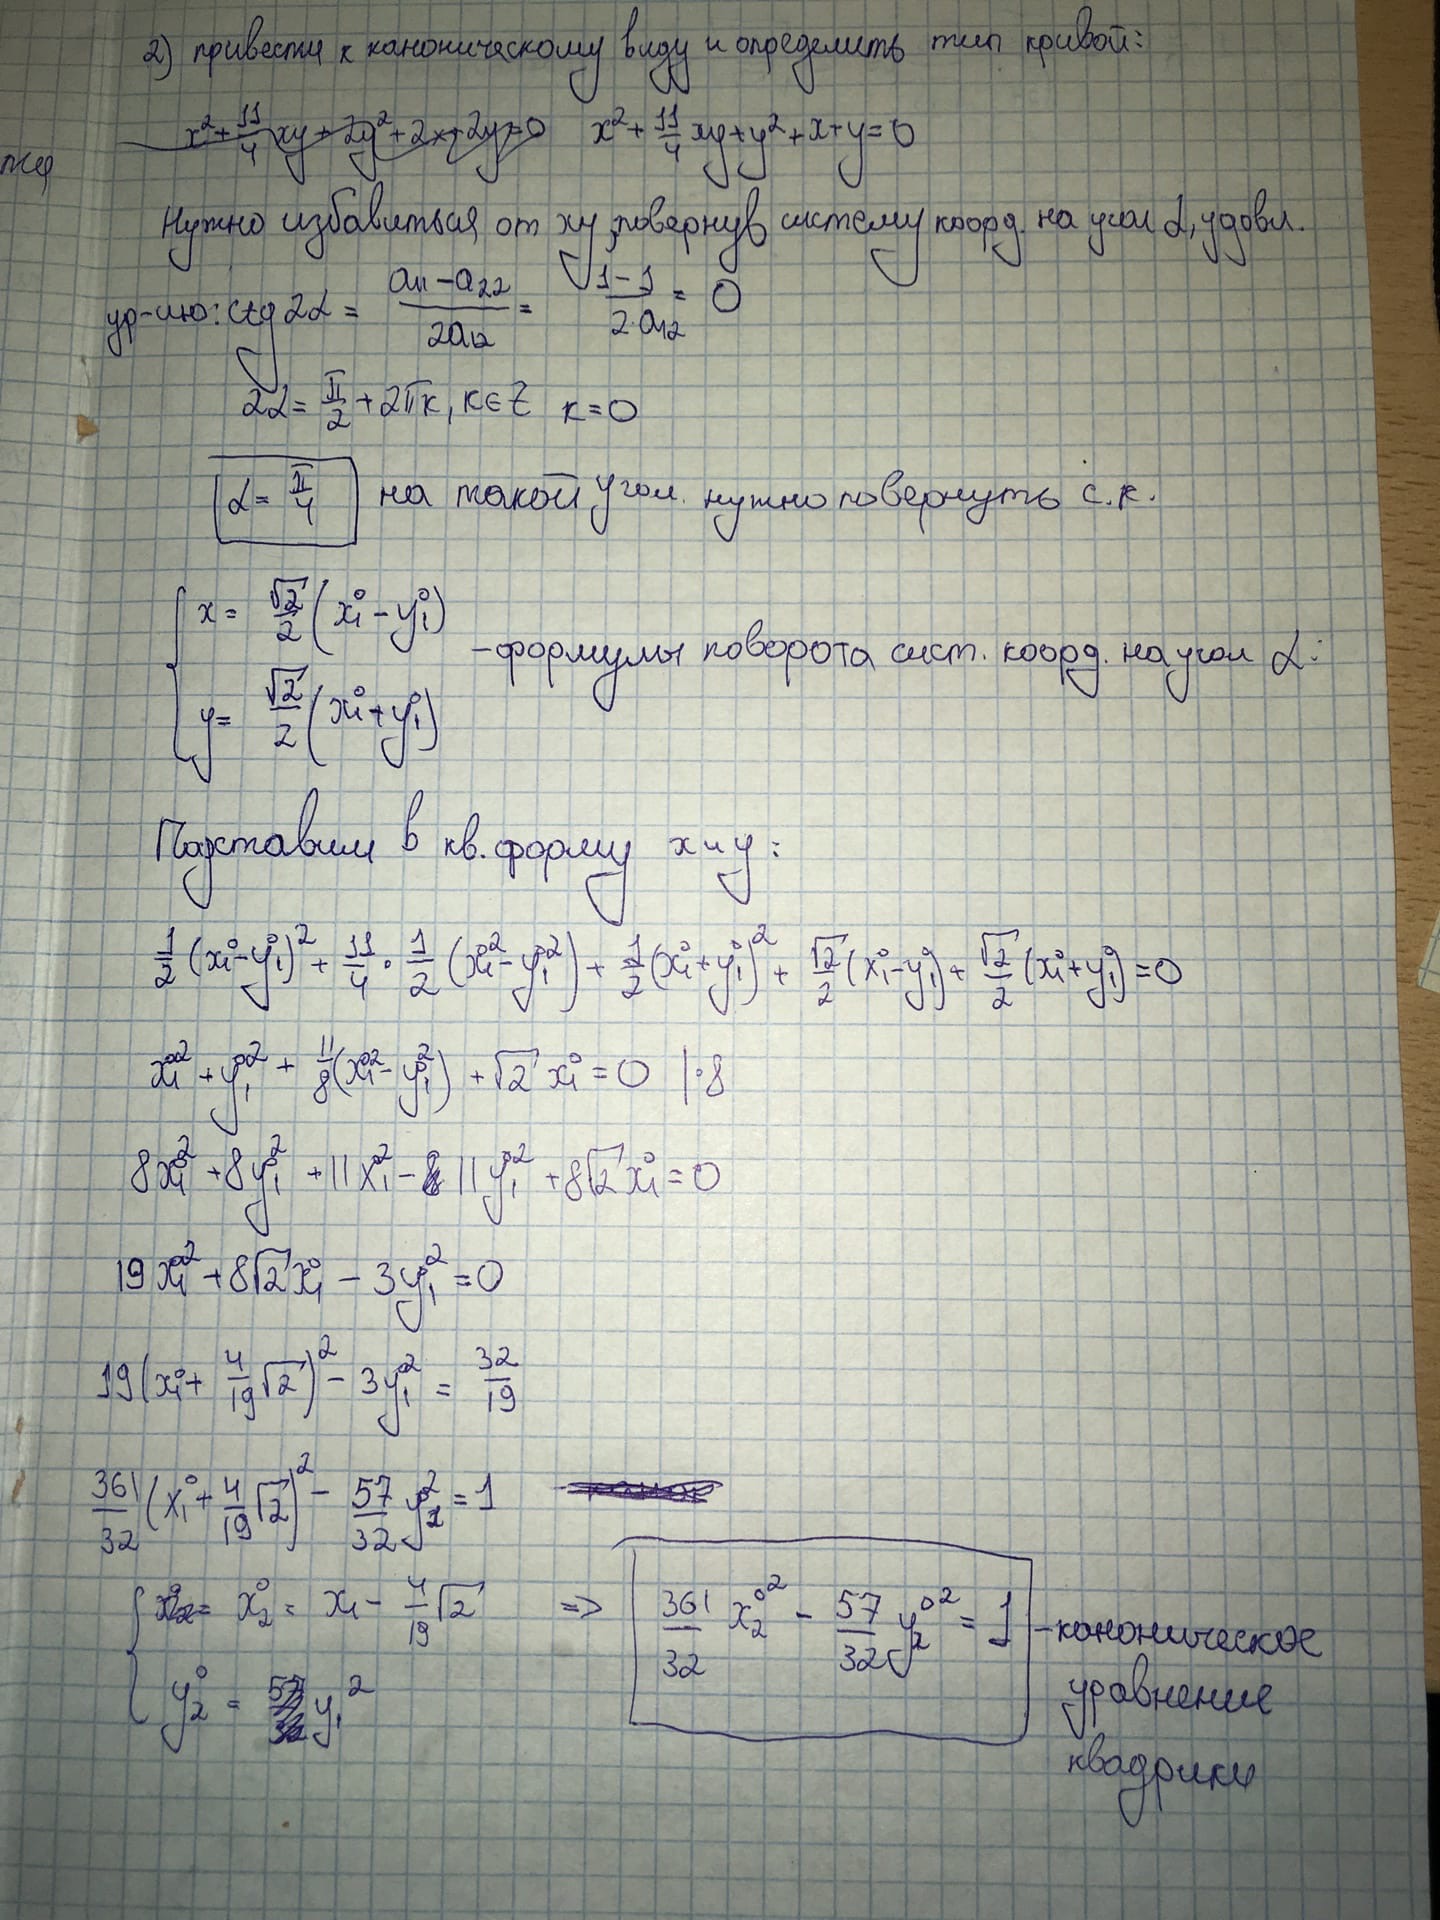 2) привести к каноническому виду и определить тип кривой:
x² + 11/4 xy + 2y² + 2x + 2y = 0   x² + 11/4 xy + y² + x + y = 0
Нужно избавиться от xy, повернув систему коорд. на угол α, удовл.
ур-ию: ctg 2α = (a₁₁ - a₂₂)/(2a₁₂) = (1 - 1)/(2·a₁₂) = 0
2α = π/2 + 2πk, k∈Z   k = 0
α = π/4 на такой угол. нужно повернуть с.к.
x = √2/2 (x₁° - y₁°)
- формулы поворота сист. коорд. на угол α:
y = √2/2 (x₁° + y₁°)
Подставим в кв. форму x и y:
1/2 (x₁° - y₁°)² + 11/4 · 1/2 (x₁°² - y₁°²) + 1/2 (x₁° + y₁°)² + √2/2 (x₁° - y₁°) + √2/2 (x₁° + y₁°) = 0
x₁°² + y₁°² + 11/8 (x₁°² - y₁°²) + √2 x₁° = 0 |·8
8x₁°² + 8y₁°² + 11x₁°² - 11y₁°² + 8√2 x₁° = 0
19x₁°² + 8√2 x₁° - 3y₁°² = 0
19(x₁° + 4/19 √2)² - 3y₁°² = 32/19
361/32 (x₁° + 4/19 √2)² - 57/32 y₂² = 1
x₂° = x₁ - 4/19 √2 => 361/32 x₂°² - 57/32 y₂°² = 1 - каноническое
y₂° = y₁² уравнение
квадрики